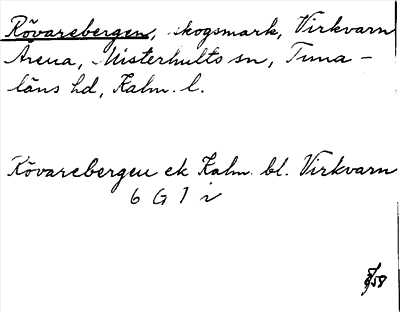 Rövarebergen, skogsmark, Virkvarn
Arena, Misterhults sn, Tuna-
läns hd, Kalm. l.
Rövarebergen ek Kalm. bl. Virkvarn
6 G 1 i